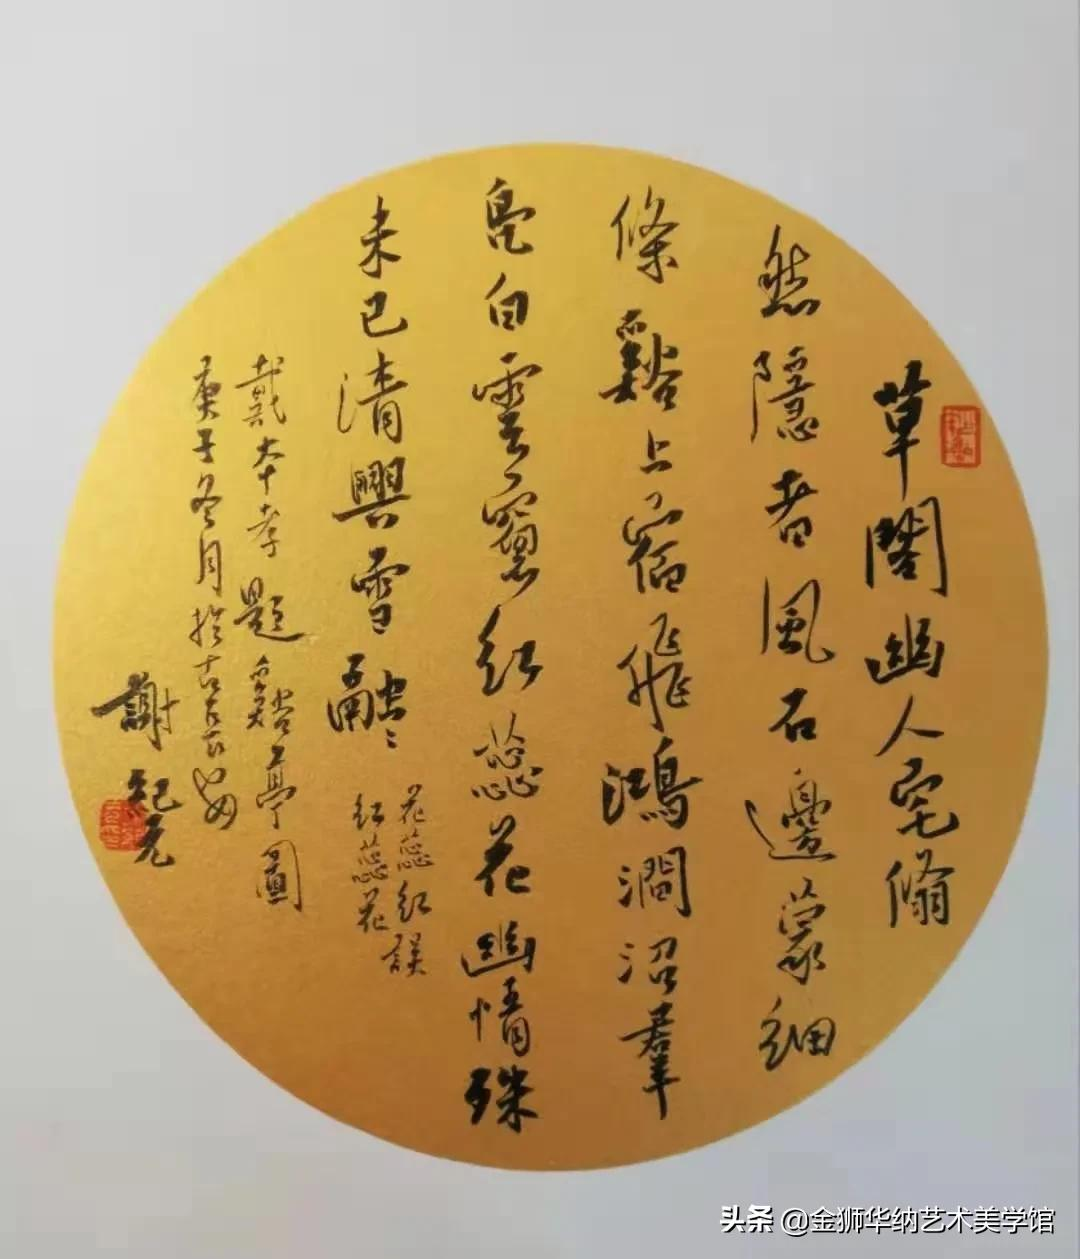 草閣幽人宅翛
然隱者風石邊蒙細
條谿上宿飛鴻澗沼羣
鳧白雲窻紅蕊花幽情殊
未已清興雪融〻
花蕊紅誤
紅蕊花
戴本孝題谿亭圖
庚子冬月於古
謝紀
头条 @金狮华纳艺术美学馆